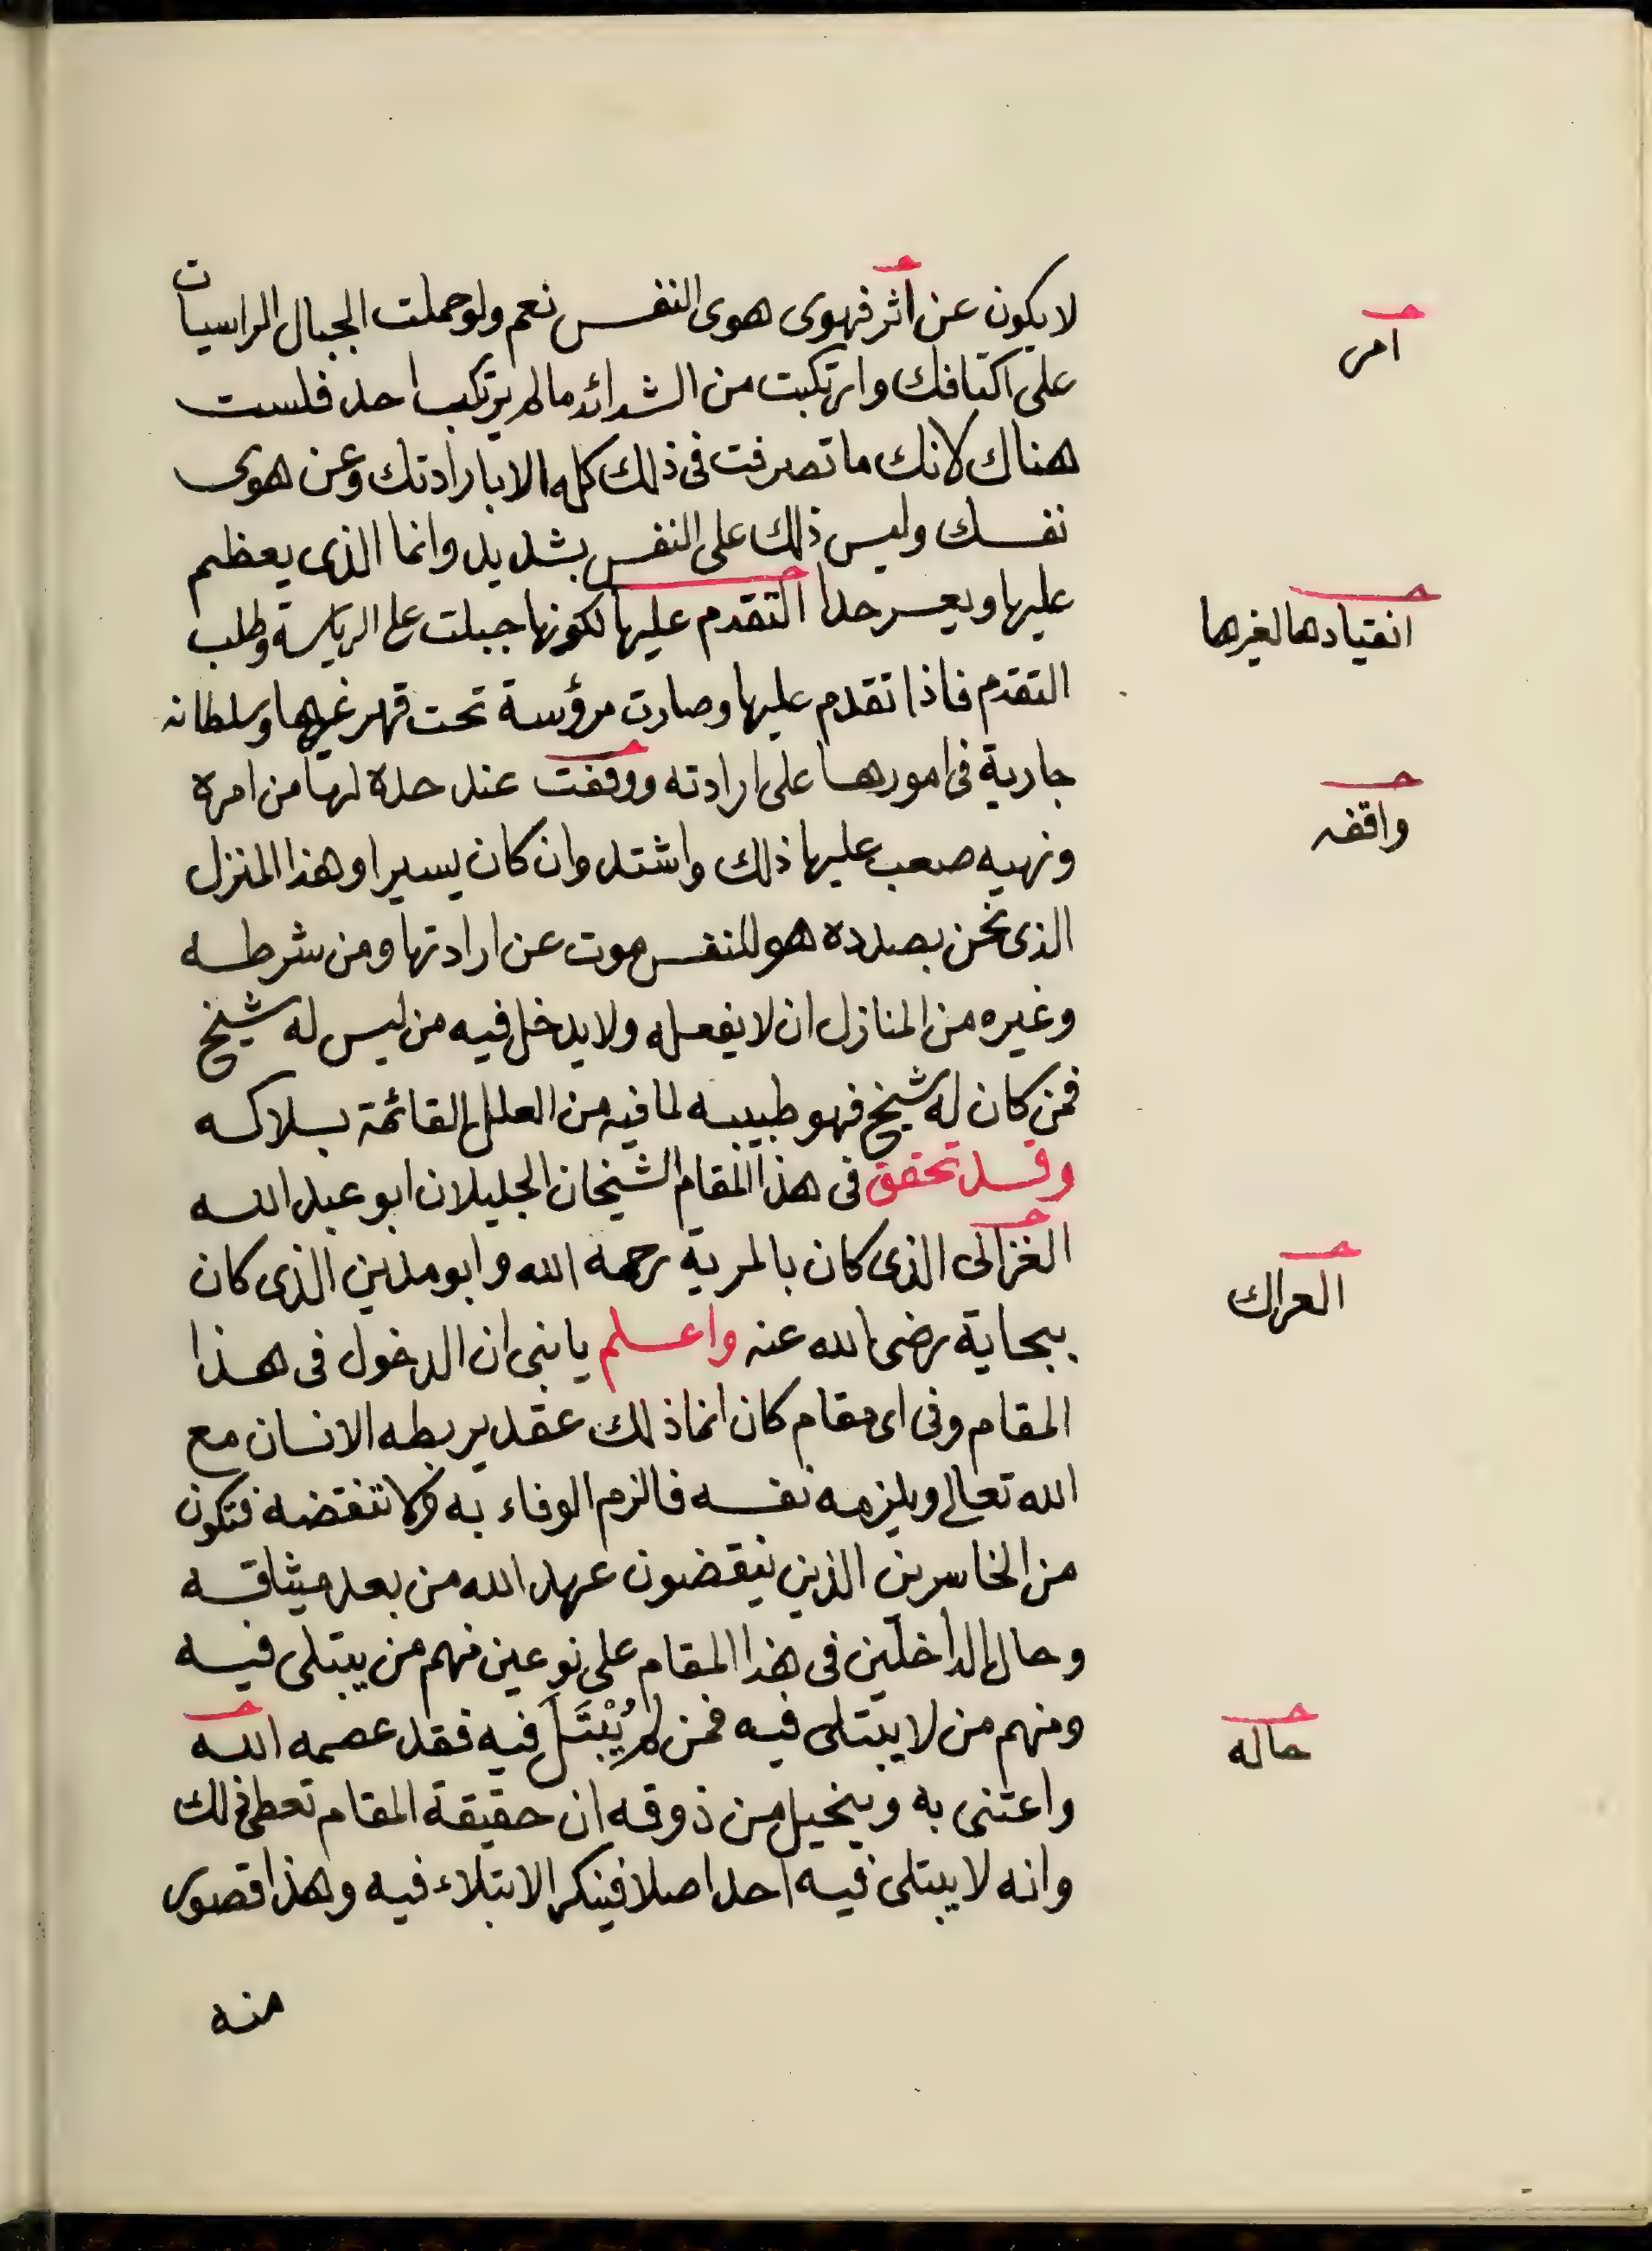 لا يكون عن اثر فهوى هوى النفس نعم ولو حملت الجبال الراسيات
امر
على اكتافك وارتكبت من الشدائد ما لم يرتكب احد فلست
هناك لانك ما تصرفت فى ذلك كله الا بارادتك وعن هوى
نفسك وليس ذلك على النفس بشديد وانما الذى يعظم
عليها ويعسر حدا التقدم عليها لكونها جبلت على الرياسة وطلب
انقيادها لغيرها
التقدم فاذا تقدم عليها وصارت مرؤسة تحت قهر غيرها وسلطانه
جارية فى امورها على ارادته ووقفت عند حده لها من امره
واقفه
ونهيه صعب عليها ذلك واشتد وان كان يسيرا وهذا المنزل
الذى نحن بصدده هو للنفس موت عن ارادتها ومن شرطه
وغيره من المنازل ان لا يفعله ولا يدخل فيه من ليس له شيخ
فمن كان له شيخ فهو طبيبه لما فيه من العلل القائمة بسلاكه
وقد تحقق فى هذا المقام الشيخان الجليلان ابو عبد الله
الغزالى الذى كان بالمرية رحمه الله وابو مدين الذى كان
العراك
ببجاية رضى الله عنه واعلم يا بنى ان الدخول فى هذا
المقام وفى اى مقام كان انما ذلك عقد يربطه الانسان مع
الله تعالى ويلزمه نفسه فالزم الوفاء به ولا تنقضه فتكون
من الخاسرين الذين ينقضون عهد الله من بعد ميثاقه
وحال الداخلين فى هذا المقام على نوعين فمنهم من يبتلى فيه
ومنهم من لا يبتلى فيه فمن لم يُبْتَلَ فيه فقد عصمه الله
حاله
واعتنى به ويتخيل من ذوقه ان حقيقة المقام تعطى ذلك
وانه لا يبتلى فيه احد اصلا فينكر الابتلاء فيه وهذا قصور
منه